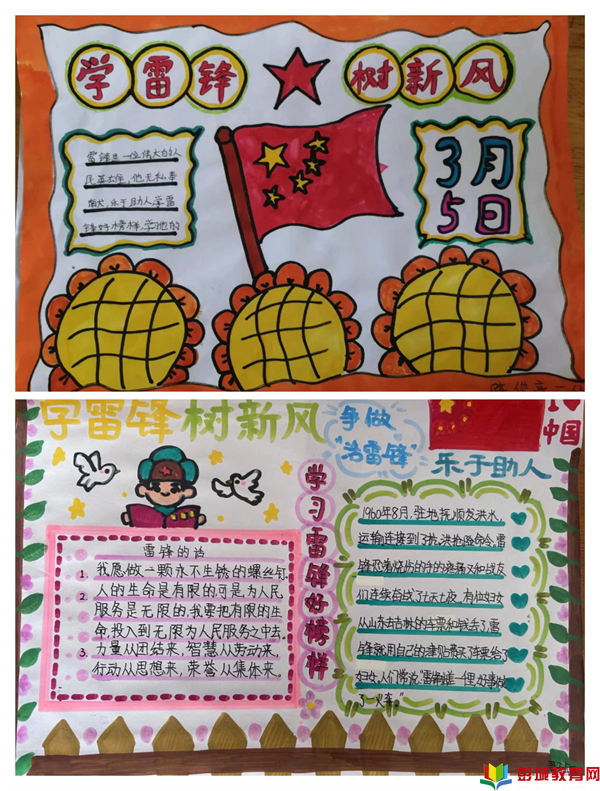 学雷锋 树新风
雷锋是一位伟大的人
民英雄，他无私奉
献，乐于助人学雷
锋好榜样，学他的
3月
5日
学雷锋树新风
争做
“活雷锋”
中国
乐于助人
学习雷锋好榜样
雷锋的话
1. 我愿做一颗永不生锈的螺丝钉
2. 人的生命是有限的可是为人民
服务是无限的，我要把有限的生
命，投入到无限为人民服务之中去。
3. 力量从团结来，智慧从劳动来，
行动从思想来，荣誉从集体来。
1960年8月，驻地抚顺发洪水，
运输连接到了抗洪抢险命令，雷
锋忍着
的手的疼痛又和战友
们连续奋战了七天七夜，有位妇女
从山东去吉林的车票和钱丢了，雷
锋就用自己的津贴费买了车票给了
妇女，人们常说：“雷锋
一里，好事做
了一火车。”
彭城教育网